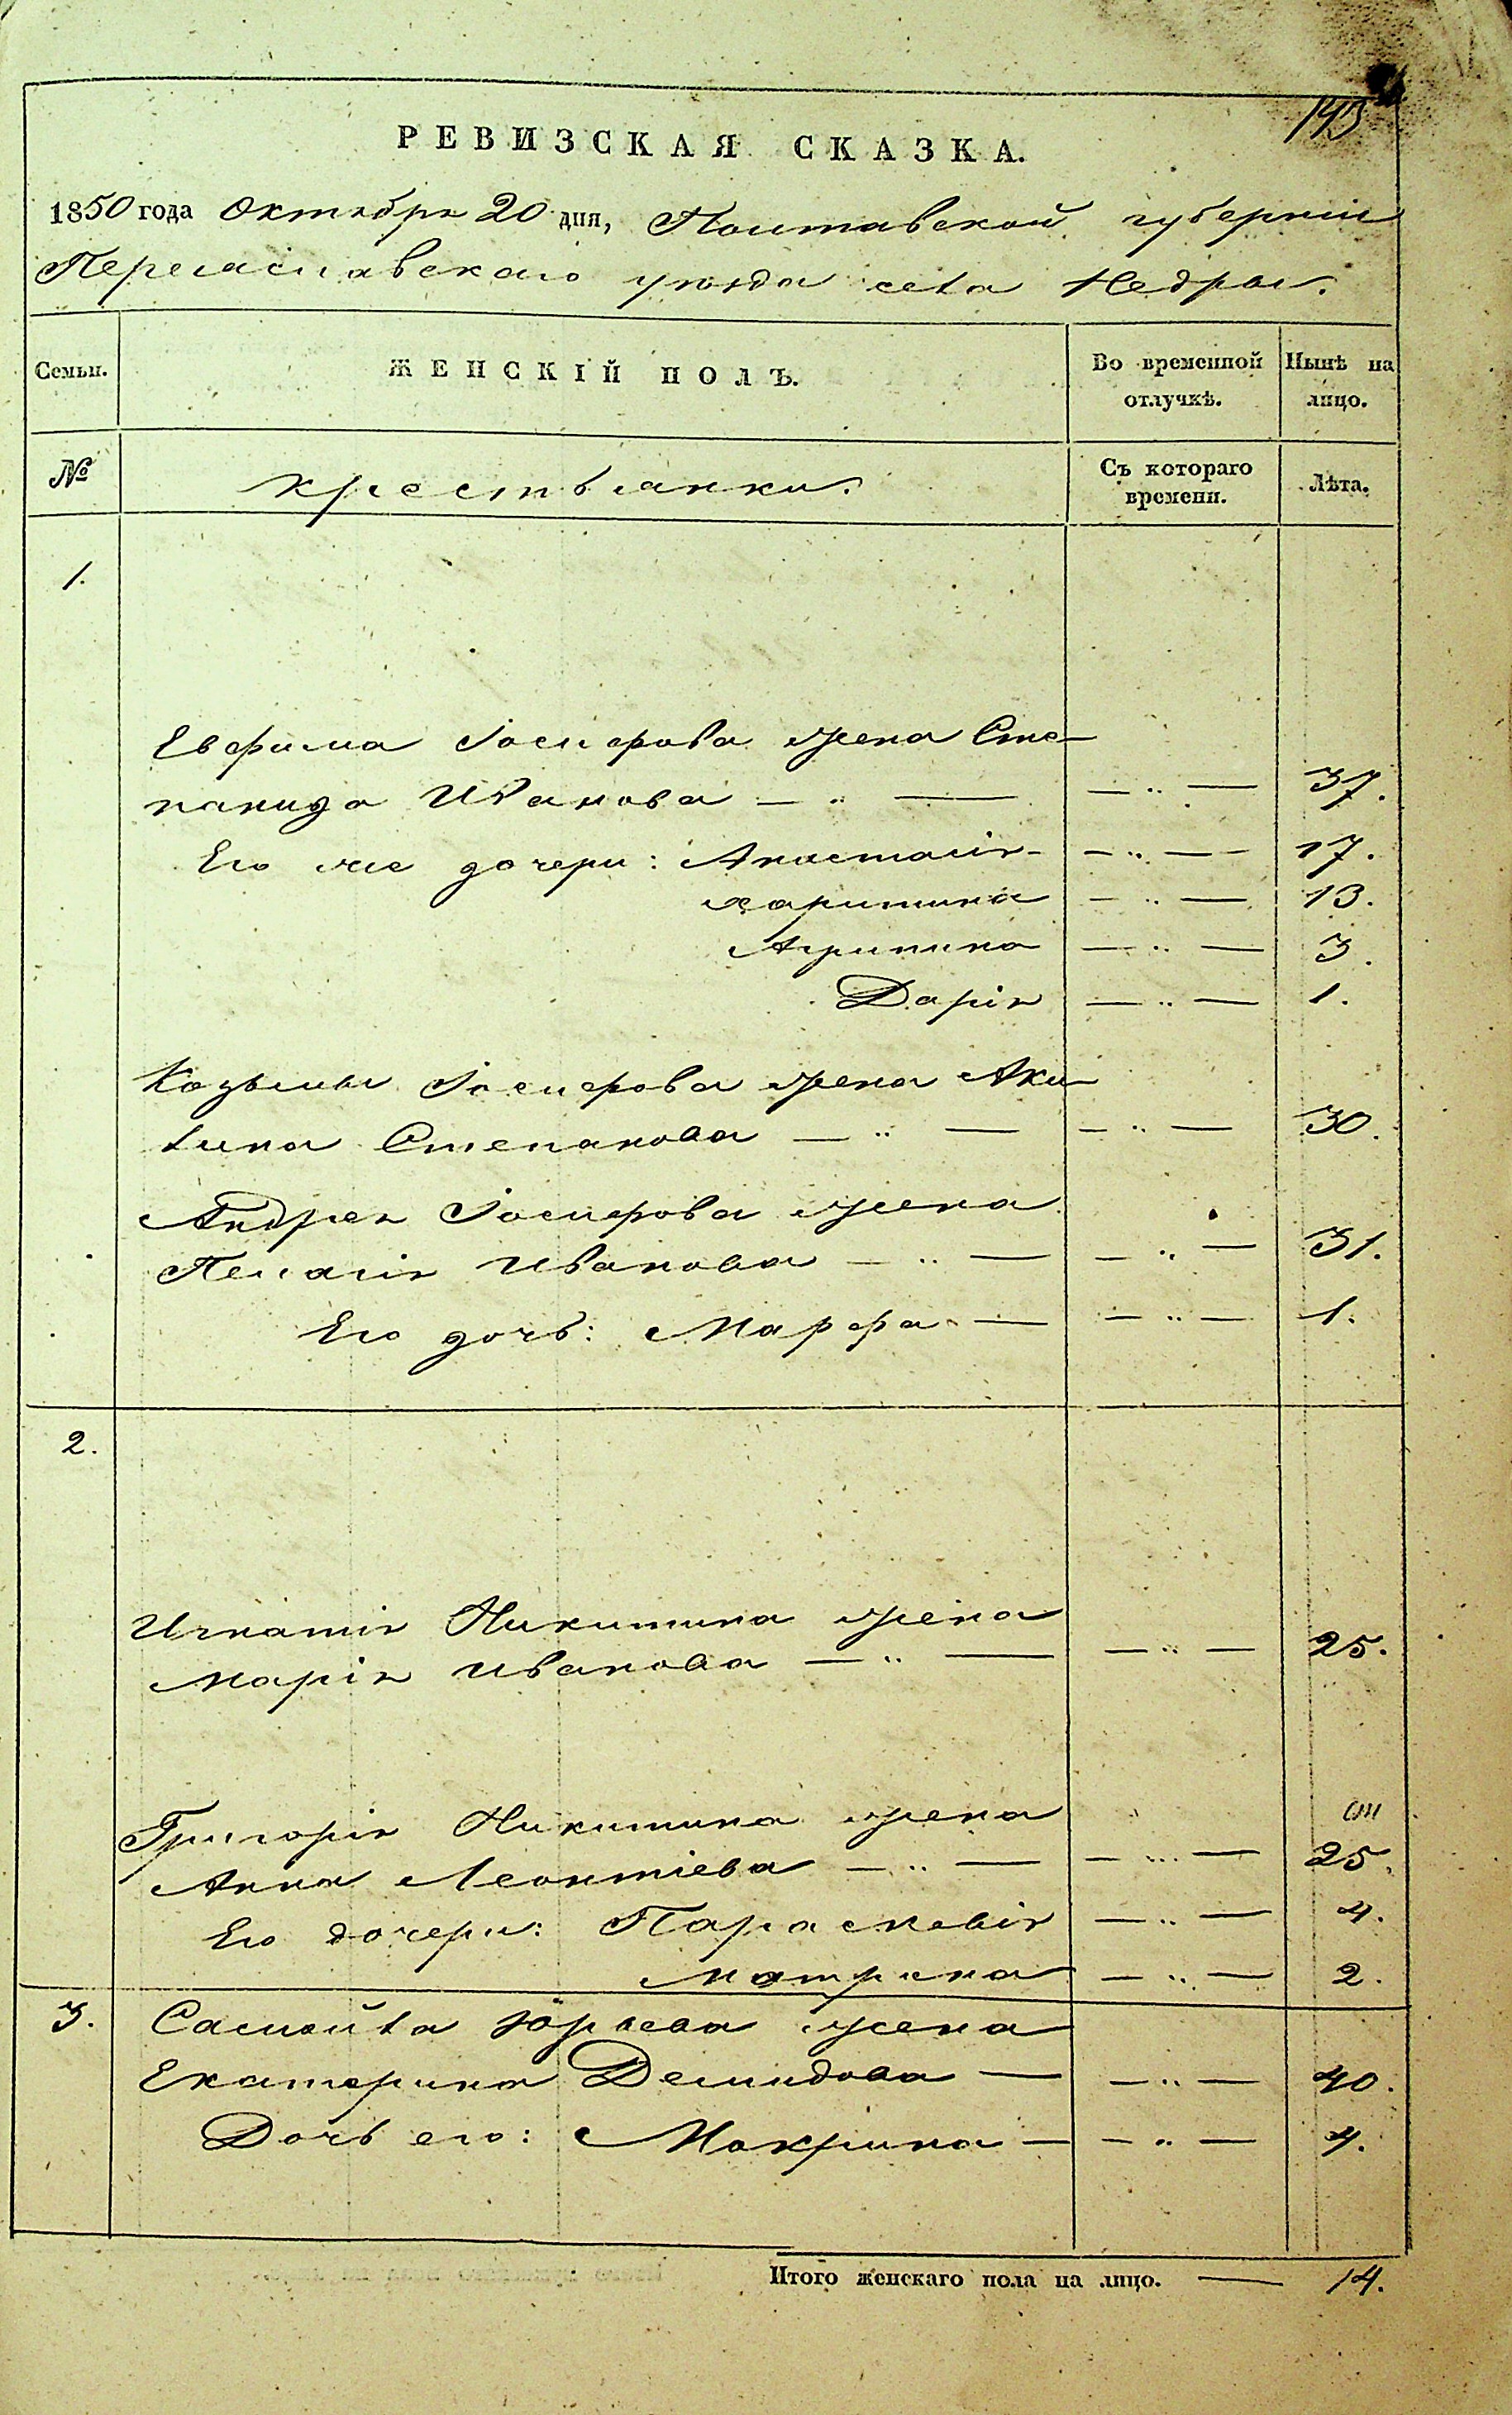 143
РЕВИЗСКАЯ СКАЗКА.
1850 года Октября 20 дня, Полтавской губерніи
Переяславскаго уѣзда села Недры.
Семьи. ЖЕНСКІЙ ПОЛЪ. Во временной отлучкѣ. Нынѣ на лицо.
№ крестьянки. Съ котораго времени. Лѣта.
1.
Евфима Іосифова жена Сте-
панида Иванова — " — — " — 37.
Его же дочери: Анастасія - — " — 17.
Харитина — " — 13.
Агрипина — " — 3.
Дарія — " — 1.
Козьмы Іосифова жена Аку-
лина Степанова — " — — " — 30.
Андрея Іосифова жена
Пелагія Иванова — " — — " — 31.
Его дочь: Марфа — — " — 1.
2.
Игнатія Никитина жена
Марія Иванова — " — — " — 25.
Григорія Никитина жена
Анна Леонтіева — " — — " — 25.
Его дочери: Параскевія — " — 4.
Матрена — " — 2.
3. Самойла Юрьева жена
Екатерина Демидова — — " — 40.
Дочь его: Макрина — — " — 4.
Итого женскаго пола на лицо. — 14.